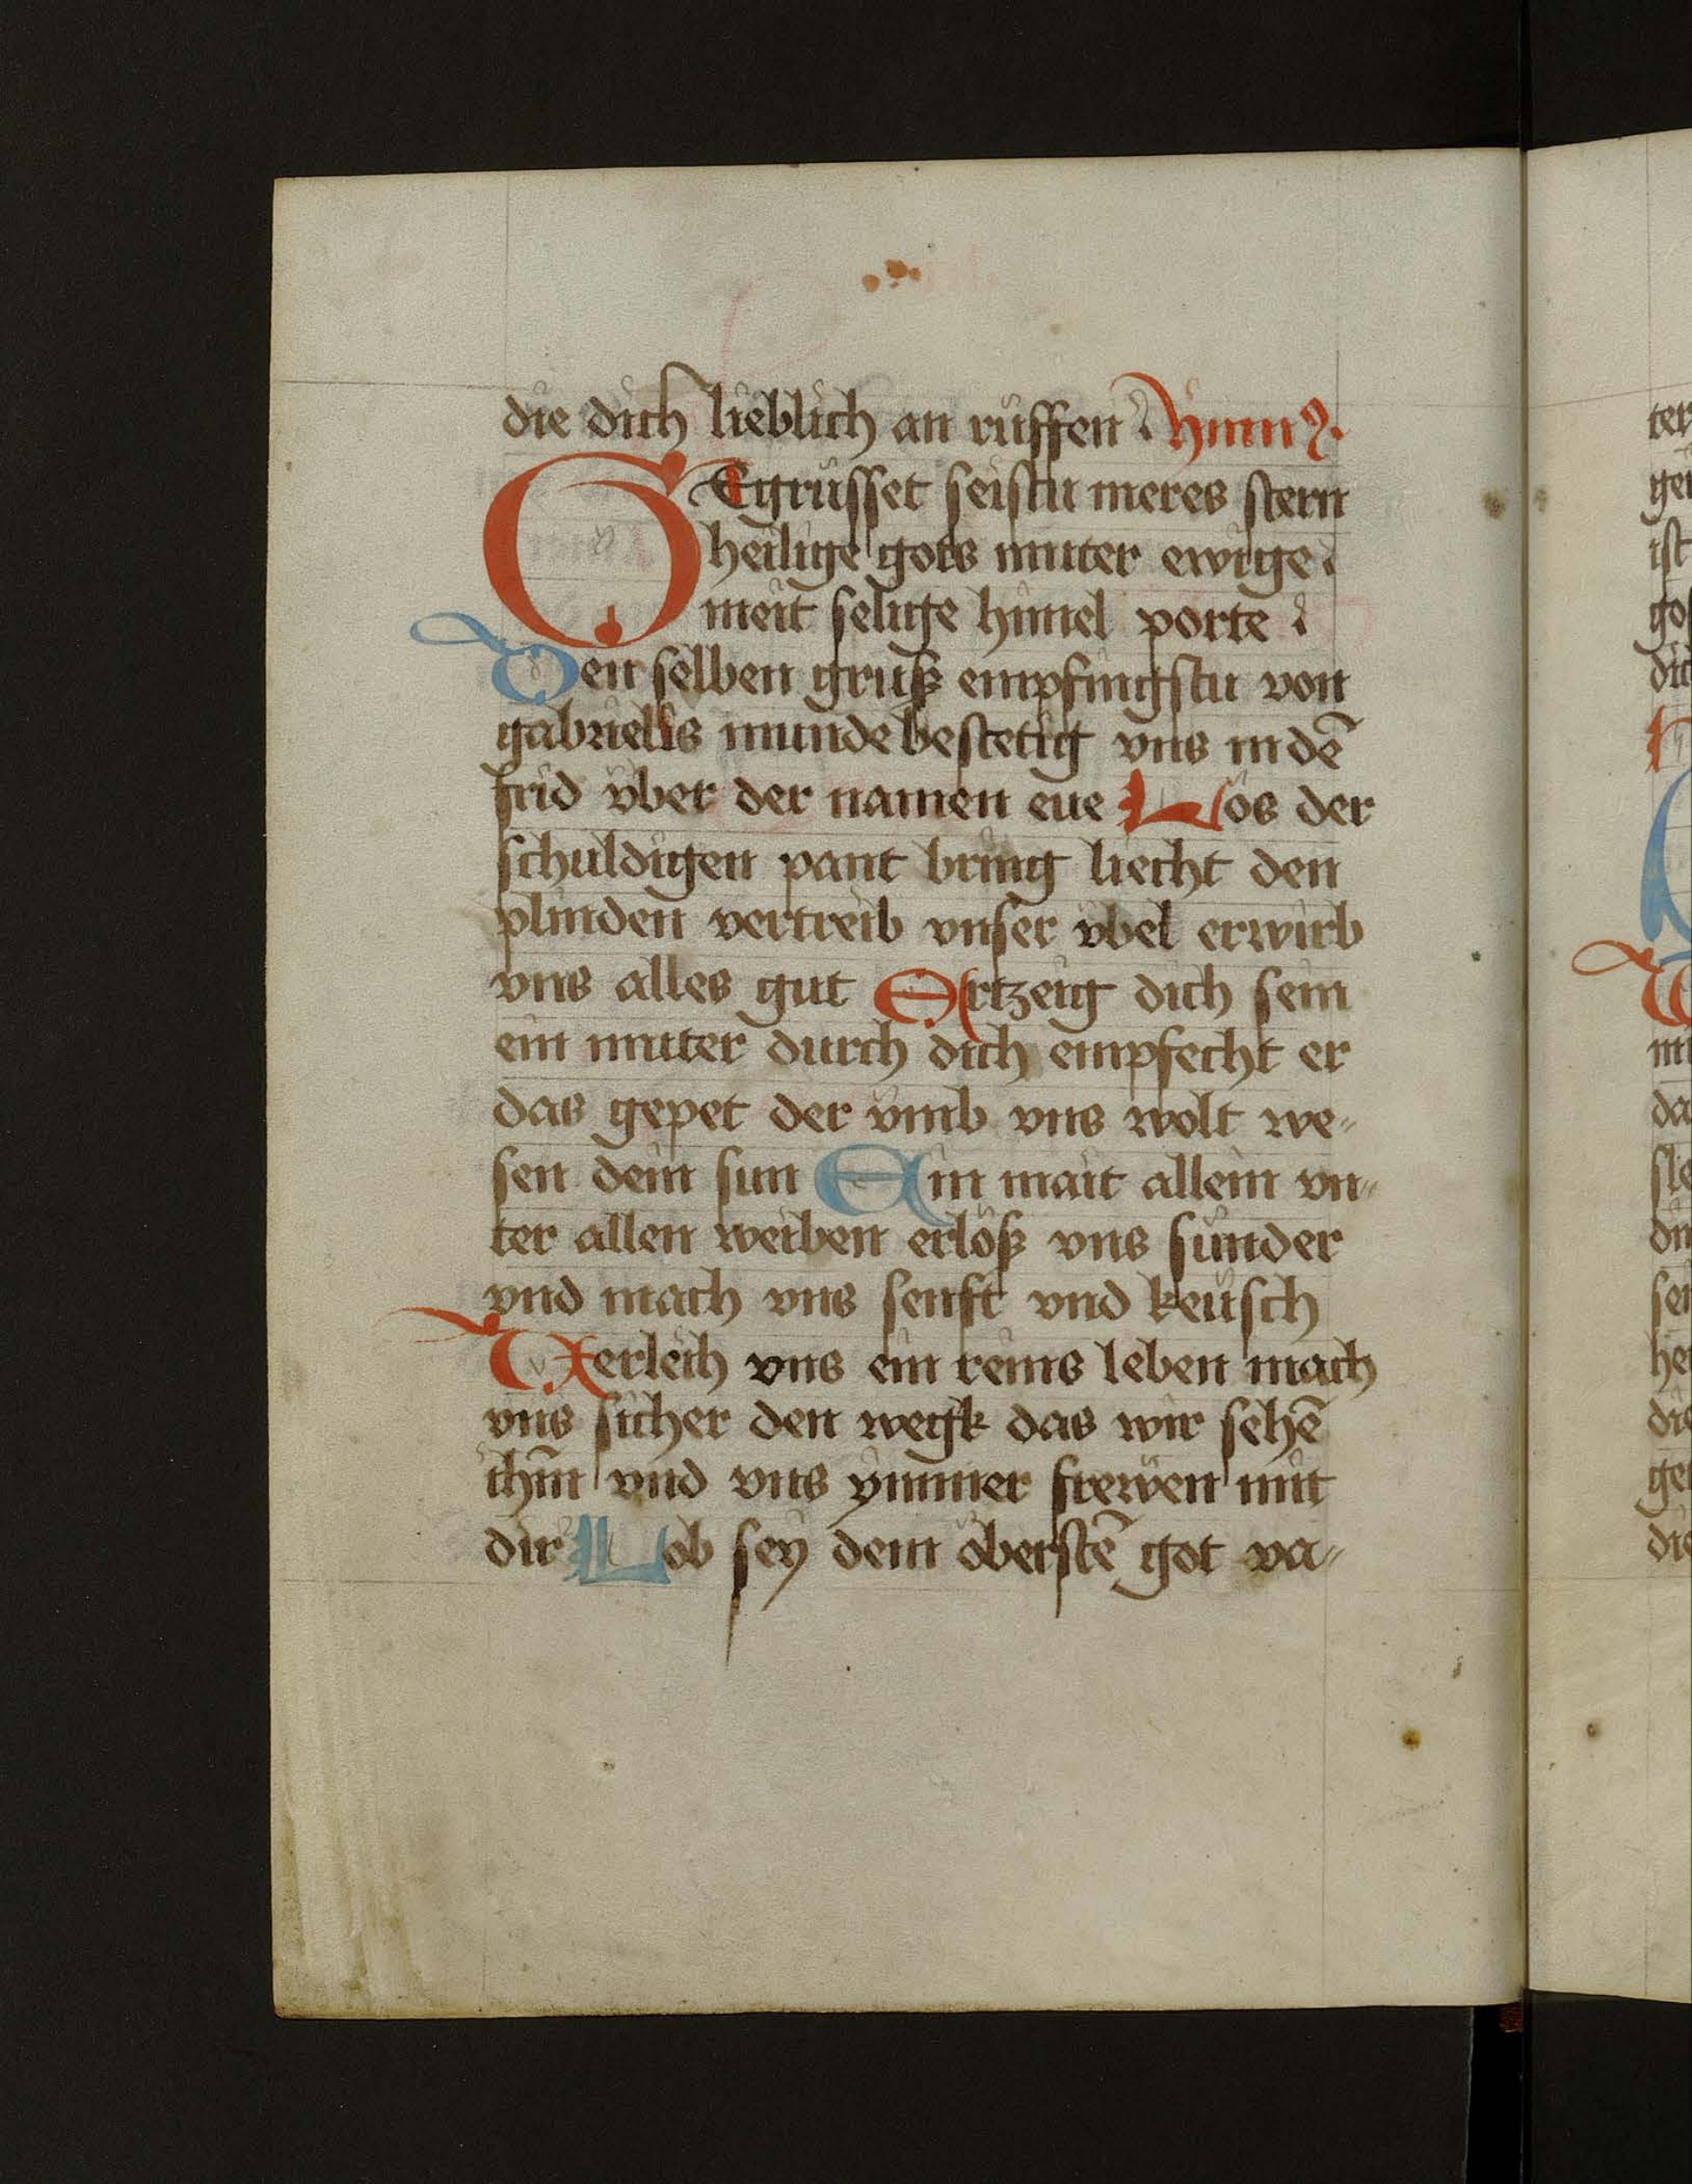 die dich lieblich an rüffen Ymnꝰ
GEgrüsset seistu meres stern
heilige gots muter ewige
meit selige himel porte
Den selben gruß empfingstu von
gabrielis munde bestetig vns in dē
frid vber der namen eue Los der
schuldigen pant bring liecht den
plinden vertreib vnser vbel erwirb
vns alles gut Ertzeig dich sein
ein muter durch dich empfecht er
das gepet der vmb vns wolt we-
sen dein sun Ein mait allein vn-
ter allen weiben erlöß vns sünder
vnd mach vns senft vnd keüsch
Verleih vns ein reins leben mach
vns sicher den wegk das wir sehē
ihm̄ vnd vns ymmer frewen mit
dir Lob sey dem öberstē got va-